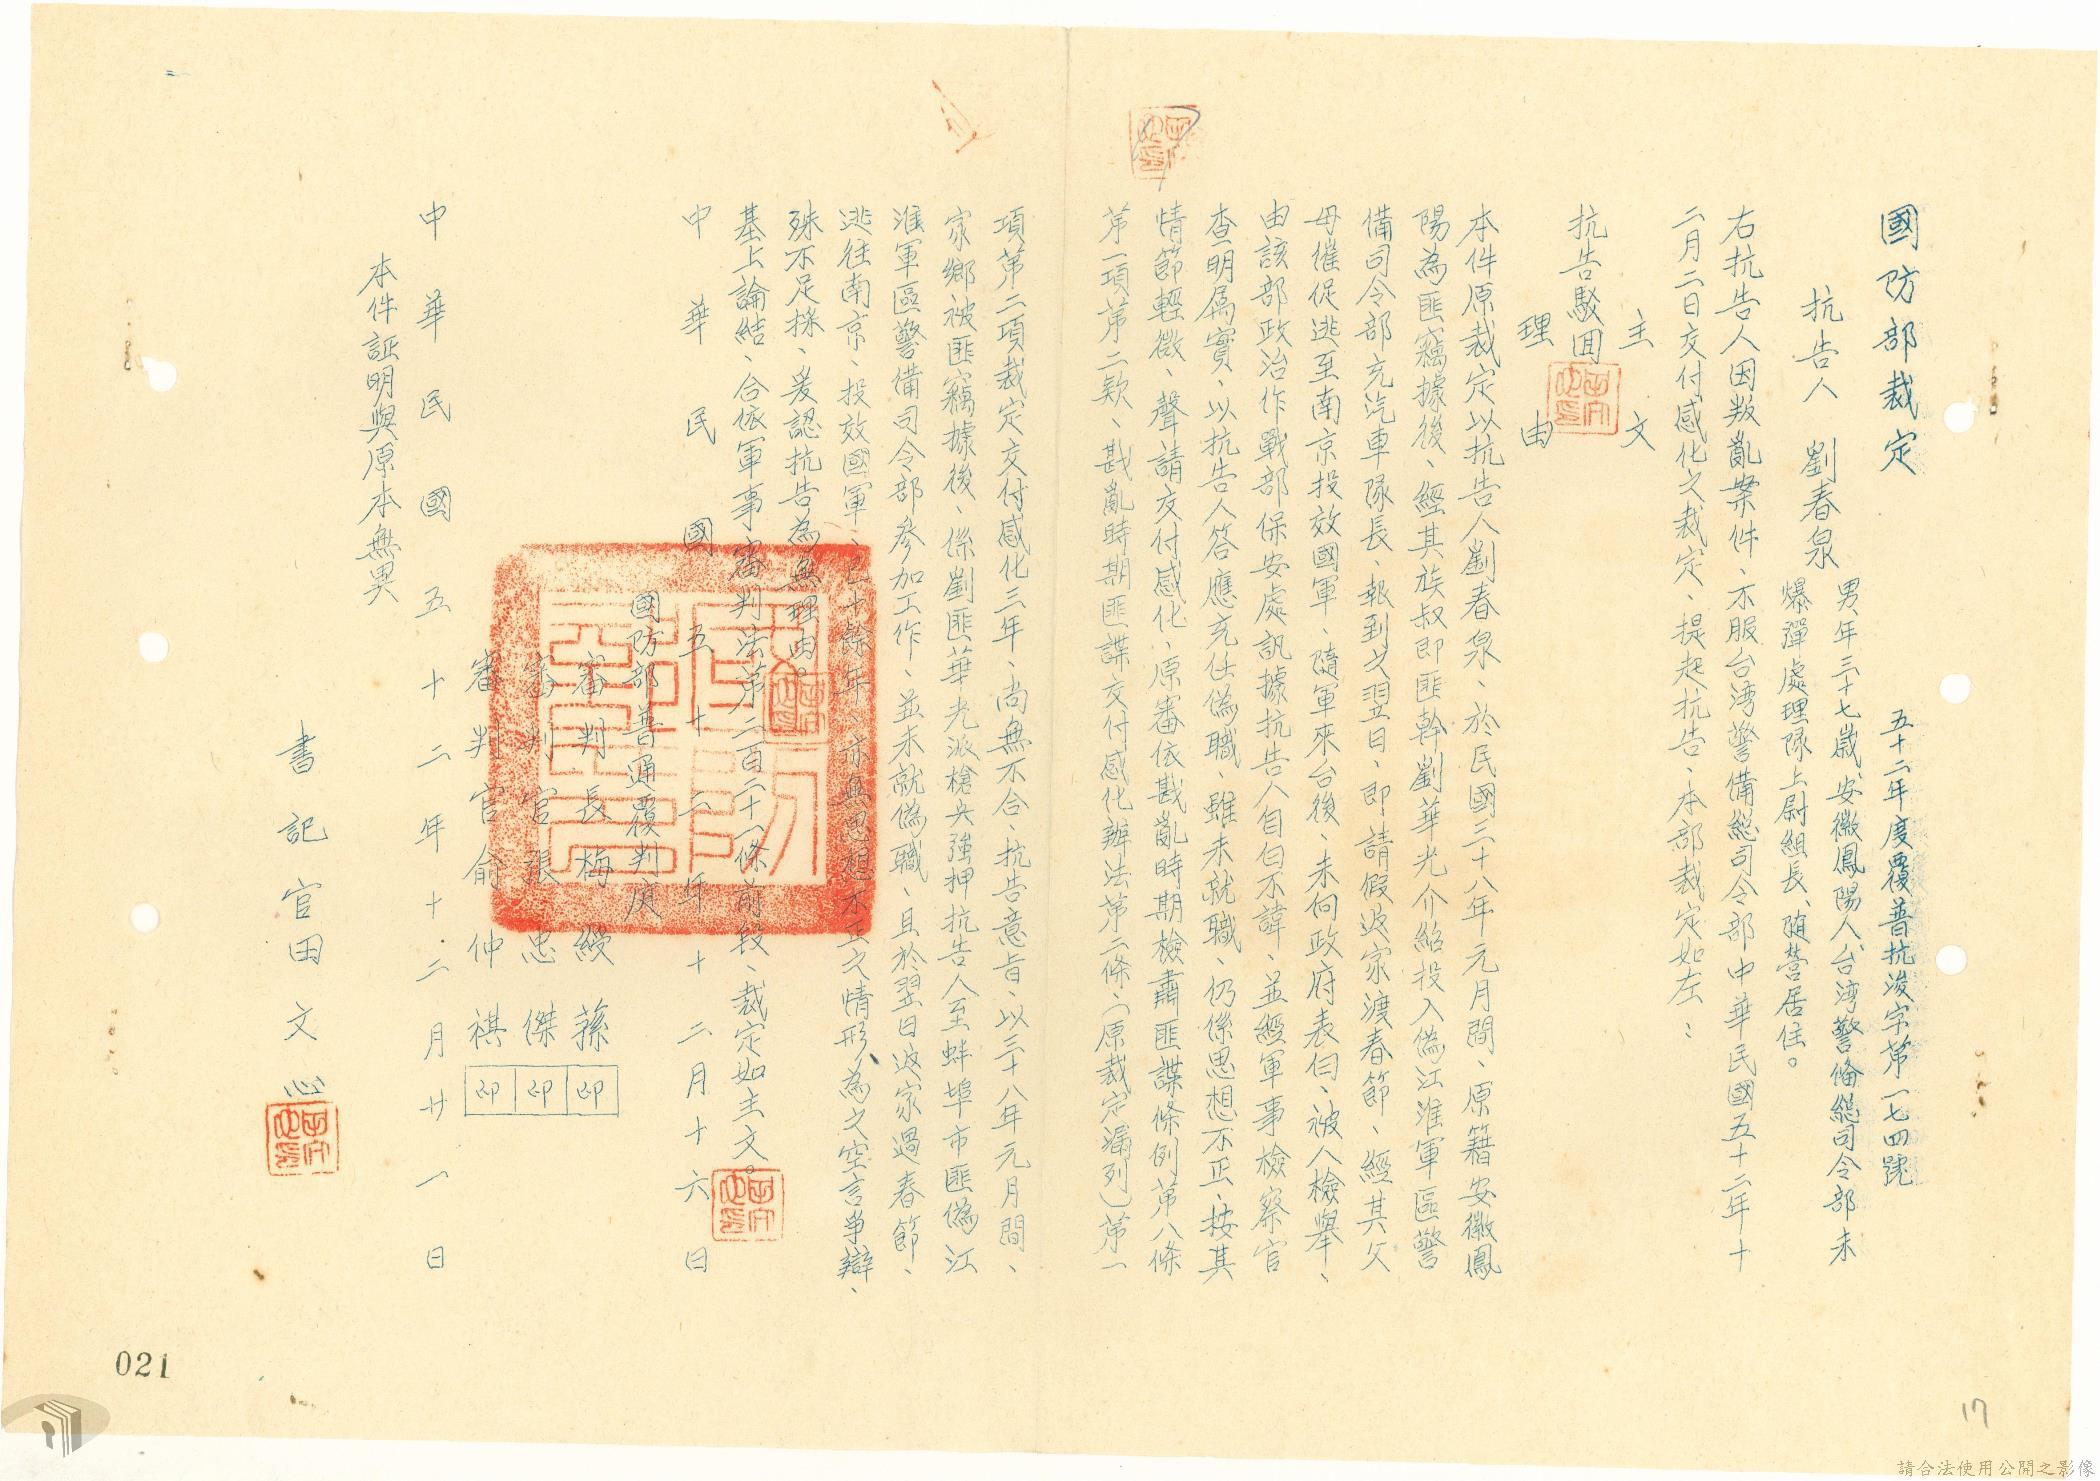 國防部裁定
五十二年度覆普抗浚字第一七四號
抗告人 劉春泉
男、年三十七歲、安徽鳳陽人、台湾警備總司令部未
爆彈處理隊上尉組長、随營居住。
右抗告人因叛亂案件、不服台湾警備総司令部中華民國五十二年十
二月二日交付感化之裁定、提起抗告、本部裁定如左：
主文
抗告駁回
理由
本件原裁定以抗告人劉春泉、於民國三十八年元月間、原籍安徽鳳
陽為匪竊據後、經其族叔即匪幹劉華光介紹投入偽江淮軍區警
備司令部充汽車隊長、報到之翌日、即請假返家渡春節、經其父
母催促逃至南京投效國軍、隨軍來台後、未向政府表白、被人檢舉、
由該部政治作戰部保安處訊據抗告人自白不諱、並經軍事檢察官
查明属實、以抗告人答應充任偽職、雖未就職、仍係思想不正、按其
情節輕微、聲請交付感化、原審依戡亂時期檢肅匪諜條例第八條
第一項第二款、戡亂時期匪諜交付感化辦法第二條（原裁定漏列）第一
項第二項裁定交付感化三年、尚無不合、抗告意旨、以三十八年元月間、
家鄉被匪竊據後、係劉匪華光派槍兵強押抗告人至蚌埠市匪偽江
淮軍區警備司令部參加工作、並未就偽職、且於翌日返家過春節、
逃往南京、投效國軍、已十餘年、亦無思想不正之情形、為之空言爭辯、
殊不足採、爰認抗告為無理由。
基上論結、合依軍事審判法第二百二十一條前段、裁定如主文。
中華民國五十二年十二月十六日
國防部普通覆判庭
審判長梅綬蓀 印
審判官張忠傑 印
審判官俞仲祺 印
中華民國五十二年十二月廿一日
本件証明與原本無異
書記官田文心
021
17
請合法使用公開之影像